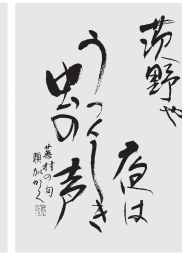 茨野や
夜は
うつくしき
虫の声
蕪村の句